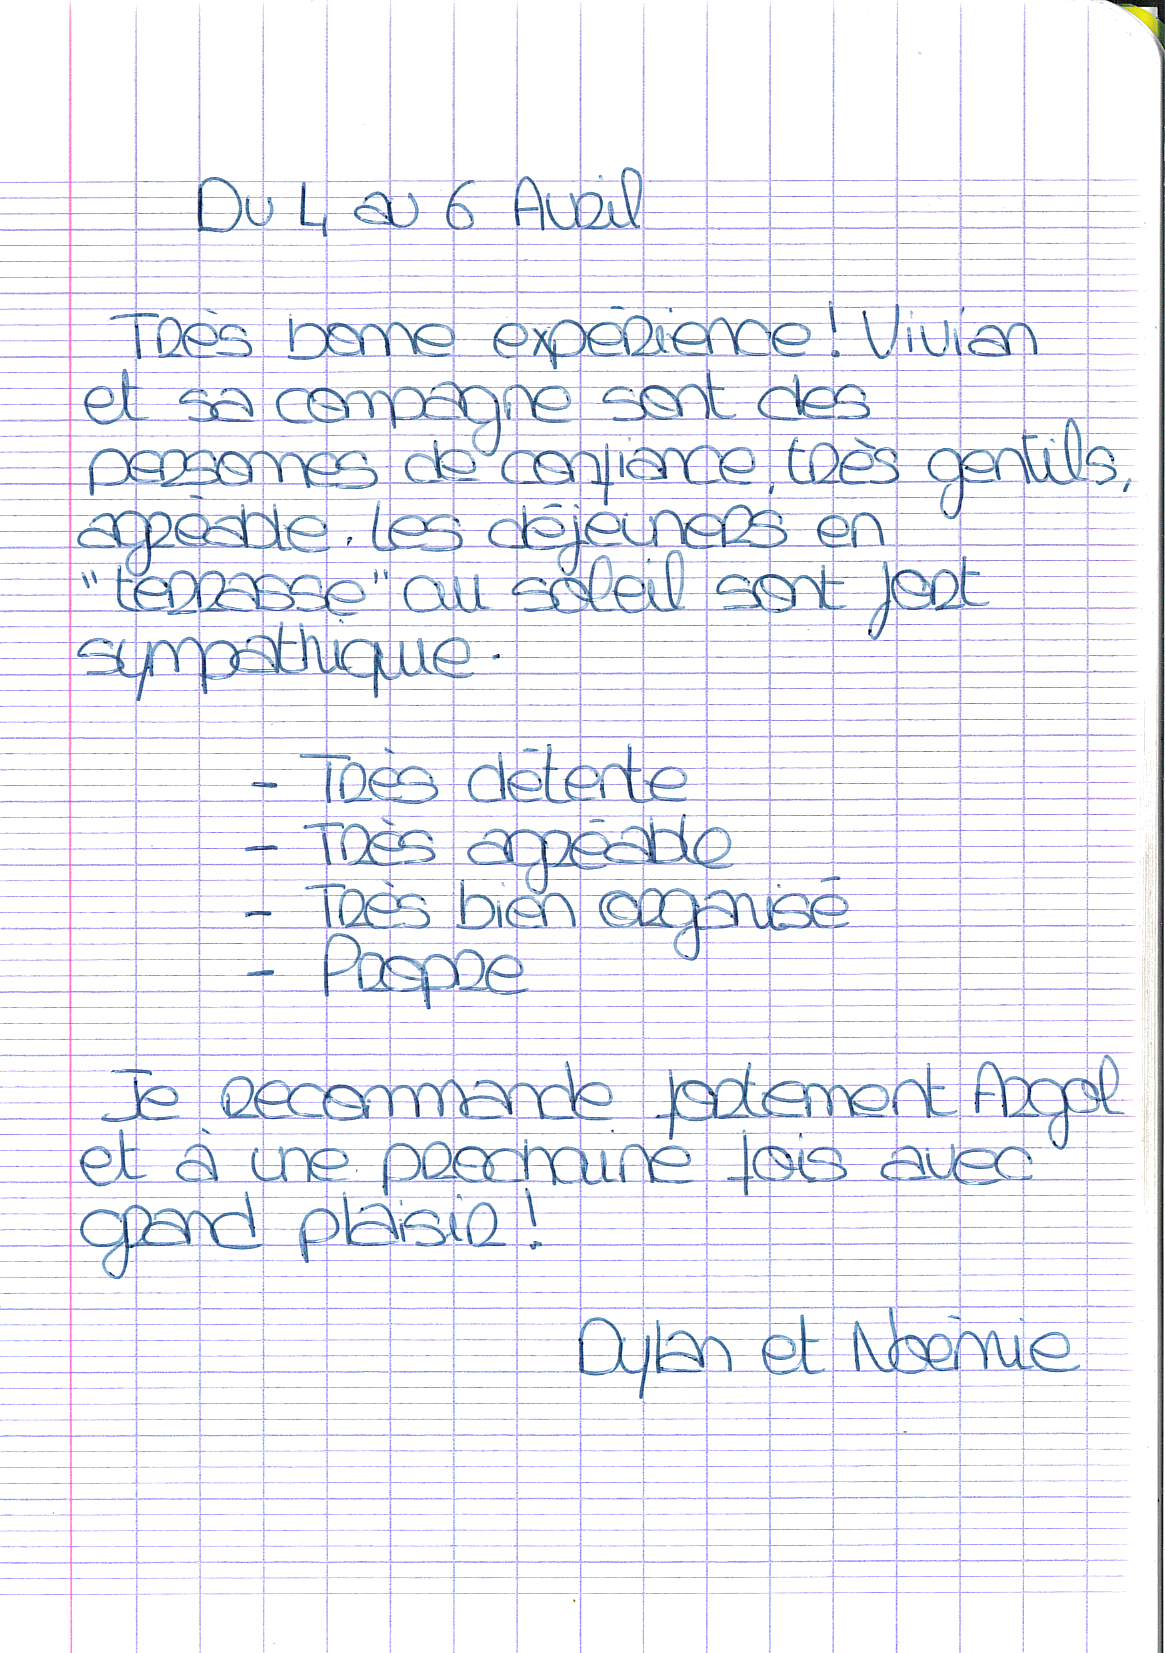 Du 4 au 6 Avril
Très bonne expérience ! Vivian
et sa compagne sont des
personnes de confiance, très gentils,
agréable. les déjeuners en
"terrasse" au soleil sont fort
sympathique.
- Très détente
- Très agréable
- Très bien organisé
- Propre
Je recommande fortement Argol
et à une prochaine fois avec
grand plaisir !
Dylan et Noémie